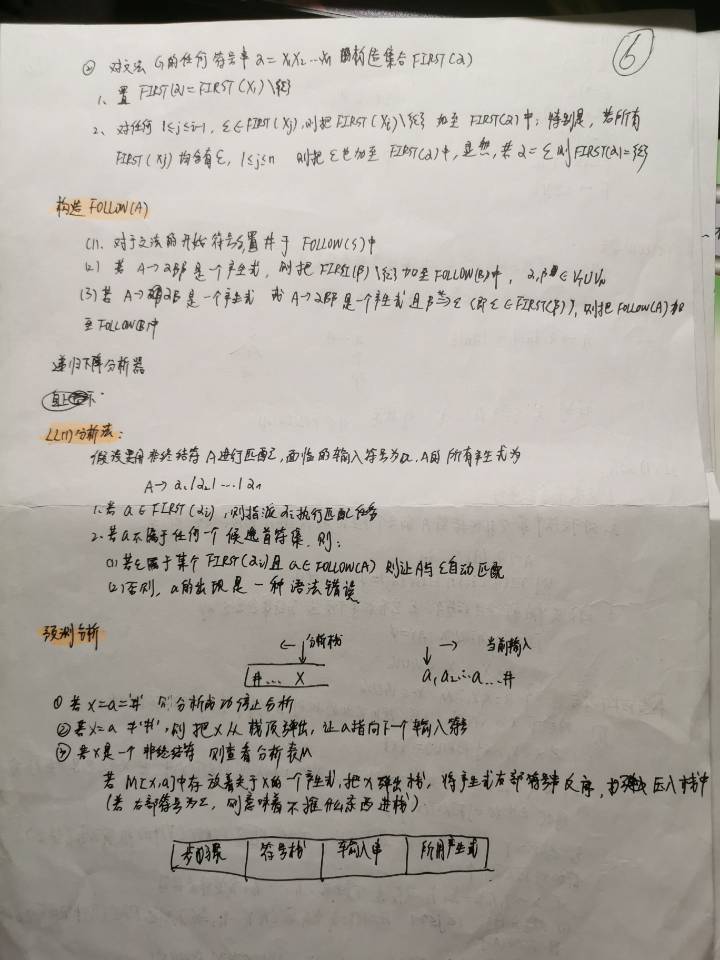 6
② 对文法 G 的任何符号串 α = X₁X₂…Xn 构造集合 FIRST(α)
1、置 FIRST(α) = FIRST(X₁)\{ε}
2、对任何 1≤j≤i-1, ε∈FIRST(Xj), 则把 FIRST(Xi)\{ε} 加至 FIRST(α)中; 特别是, 若所有
FIRST(Xj) 均含有ε, 1≤j≤n 则把 ε 也加至 FIRST(α)中, 显然, 若 α = ε 则 FIRST(α)={ε}
构造 FOLLOW(A)
(1)、对于文法的开始符号S, 置#于 FOLLOW(S)中
(2) 若 A→αBβ 是一个产生式, 则把 FIRST(β)\{ε} 加至 FOLLOW(B)中, α,β ∈ VT∪VN
(3) 若 A→αB 是一个产生式 或 A→αBβ 是一个产生式 且 β⇒ε (即 ε∈FIRST(β)), 则把 FOLLOW(A) 加
至 FOLLOW(B)中
递归下降分析器
自上下
LL(1)分析法:
假设要用非终结符 A 进行匹配, 面临的输入符号为a, A的所有产生式为
A→α₁|α₂|…|αn
1. 若 a∈FIRST(αi), 则指派 αi 执行匹配任务
2. 若a不属于任何一个候选首符集, 则:
(1) 若ε属于某个 FIRST(αi) 且 a∈FOLLOW(A) 则让A与ε自动匹配
(2) 否则, a的出现是一种语法错误
预测分析
← 分析栈 → 当前输入
#… X a₁a₂…a…#
① 若 X=a='#' 则分析成功停止分析
② 若X=a ≠'#', 则把X从栈顶弹出, 让a指向下一个输入符号
③ 若X是一个非终结符 则查看分析表M
若 M[X,a]中存放着关于X的一个产生式, 把X弹出栈, 将产生式右部符号串反序, 压入栈中
(若右部符号为ε, 则意味着不推什么东西进栈)
步骤 符号栈 输入串 所用产生式